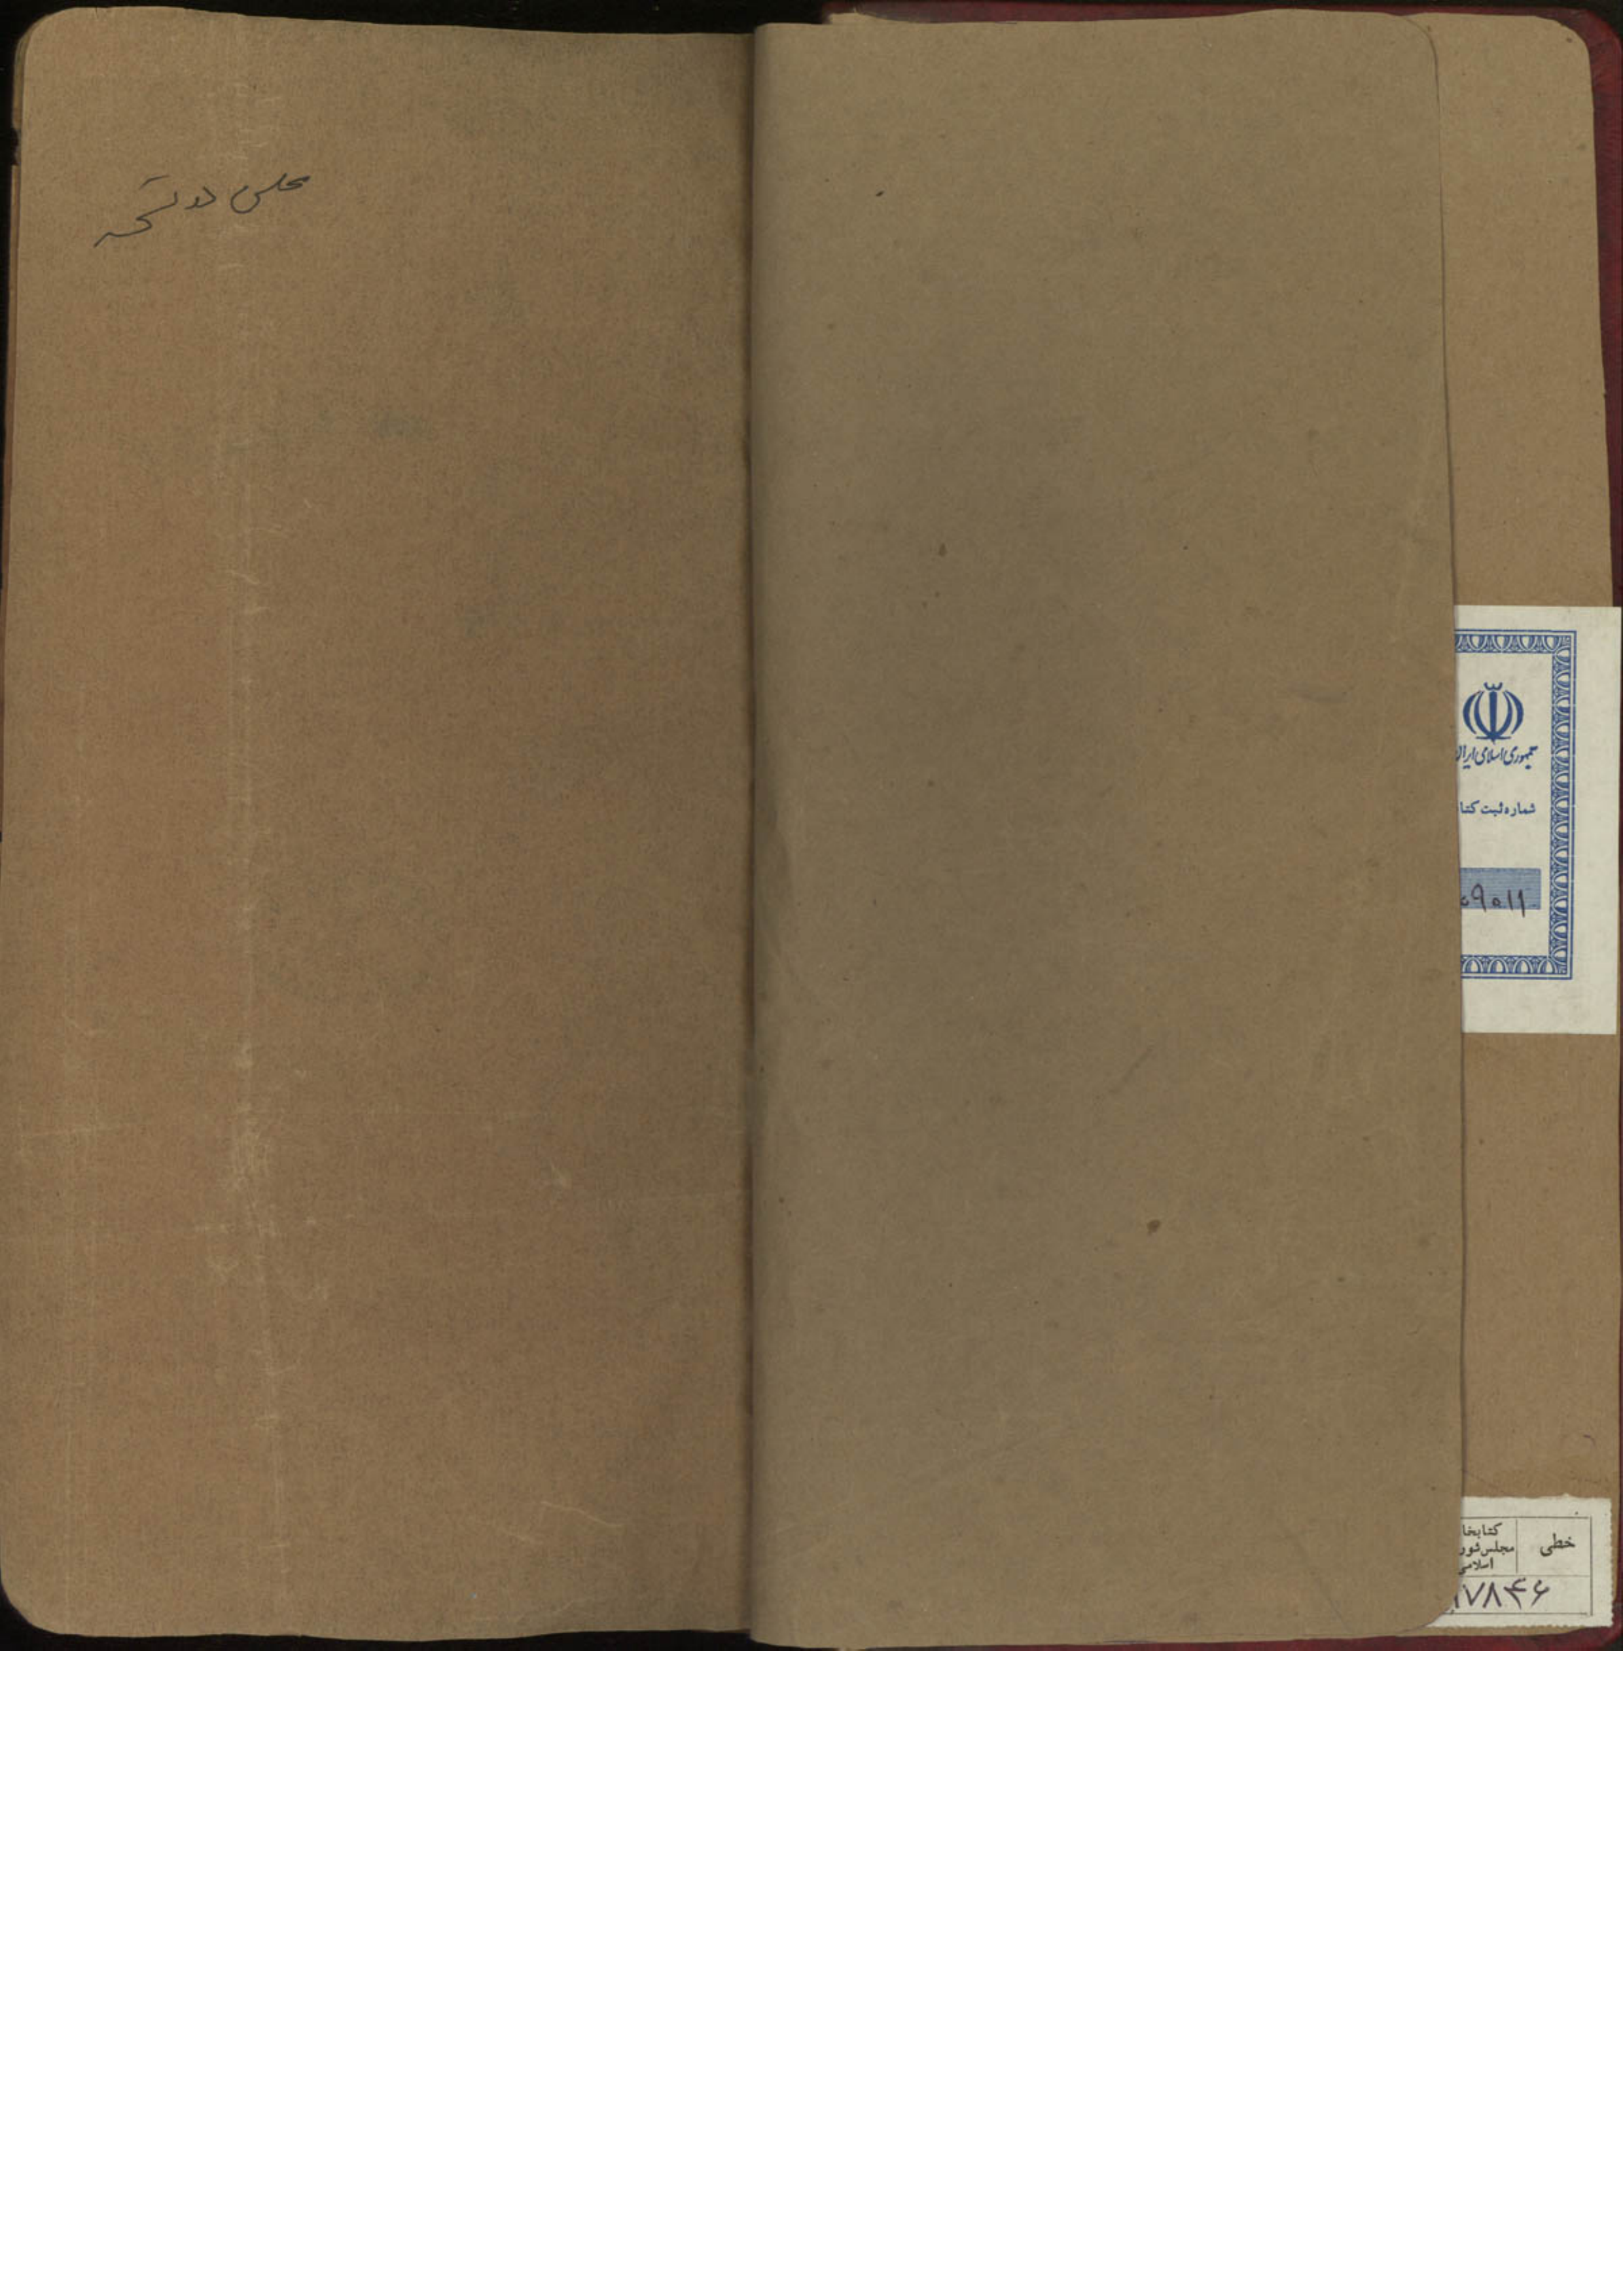 جمهوری اسلامی ایران
شماره ثبت کتا
۹۰۱۱
خطی
کتابخا
مجلس شور
اسلامی
۱۷۸۴۶